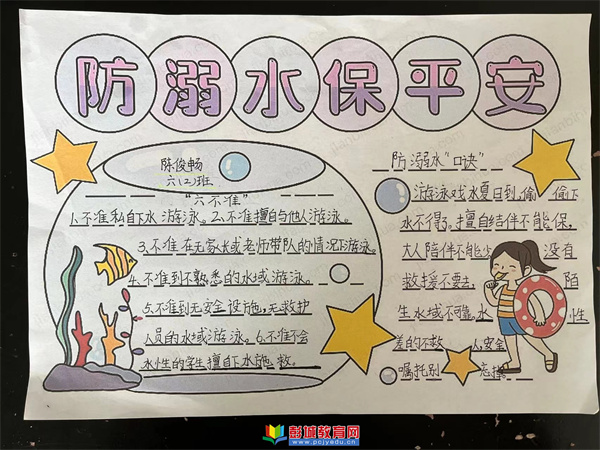 防溺水保平安
陈俊畅
六(2)班
"六不准"
1.不准私自下水游泳。2.不准擅自与他人游泳。
3.不准在无家长或老师带队的情况下游泳。
4.不准到不熟悉的水域游泳。
5.不准到无安全设施,无救护
人员的水域游泳。6.不准不会
水性的学生擅自下水施救。
防溺水"口诀"
游泳戏水夏日到,偷偷下
水不得了。擅自结伴不能保,
大人陪伴不能少。没有
救援不要去,陌
生水域不可靠。水性
差的不救人,安全
嘱托别忘掉。
彭城教育网
www.pcjyedu.cn